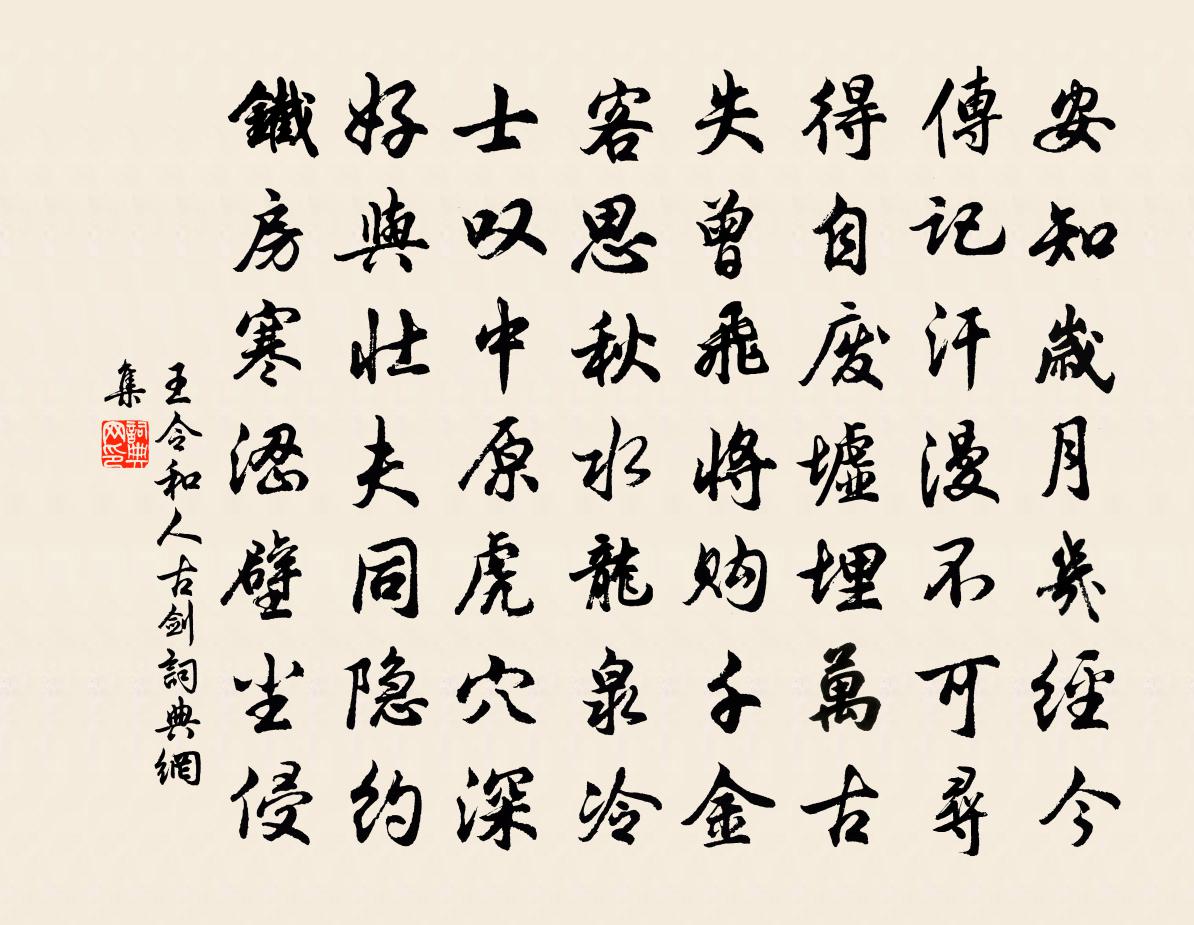 安知歲月幾經今
傳記汗漫不可尋
得自废墟埋萬古
失曾飛將购千金
客思秋水龍泉冷
士叹中原虎穴深
好與壮夫同隐约
鐵房寒涩壁尘侵
王令和人古剑詞典網
集
詞典网印